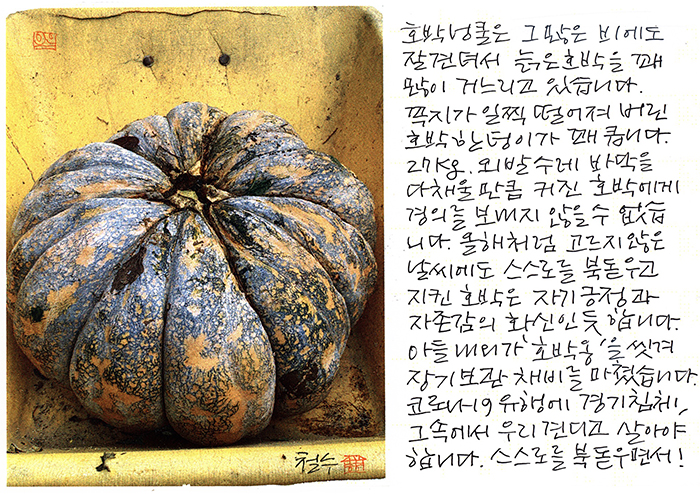 호박넝쿨은 그 많은 비에도
잘견뎌서 늙은호박을 꽤
많이 거느리고 있습니다.
꼭지가 일찍 떨어져 버린
호박한덩이가 꽤 큽니다.
27kg. 외발수레 바닥을
다채울만큼 커진 호박에게
경의를 보내지 않을 수 없습
니다. 올해처럼 고르지않은
날씨에도 스스로를 북돋우고
지킨 호박은 자기긍정과
자존감의 화신인듯 합니다.
아들내외가 '호박옹'을 씻겨
장기보관 채비를 마쳤습니다.
코로나19 유행에 경기침체,
그속에서 우리 견디고 살아야
합니다. 스스로를 북돋우면서!
철수